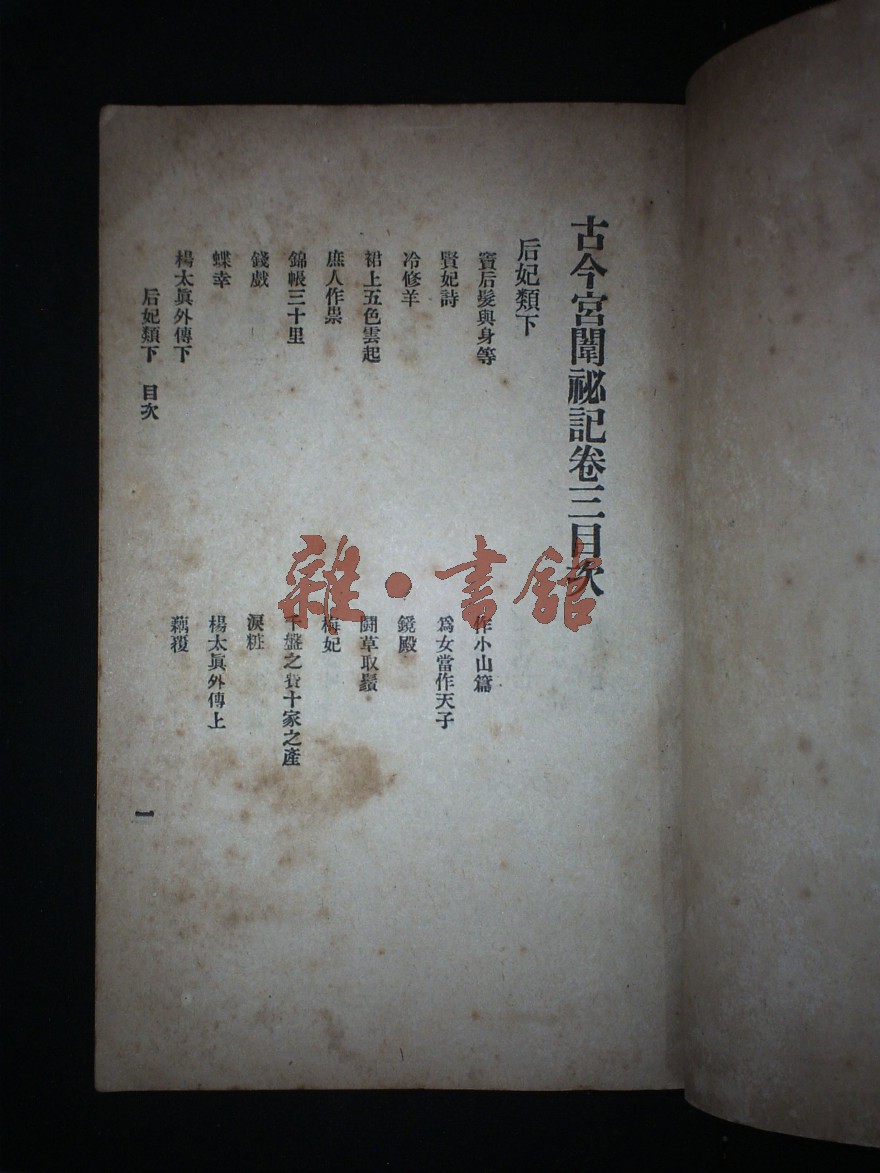 古今宮闈祕記卷三目次
后妃類下
竇后髮與身等
作小山篇
賢妃詩
爲女當作天子
冷修羊
鏡殿
裙上五色雲起
鬪草取鬚
庶人作祟
梅妃
錦帳三十里
千盤之費十家之產
錢戲
淚粧
蝶幸
楊太眞外傳上
楊太眞外傳下
藕覆
后妃類下 目次
一
雜·書館